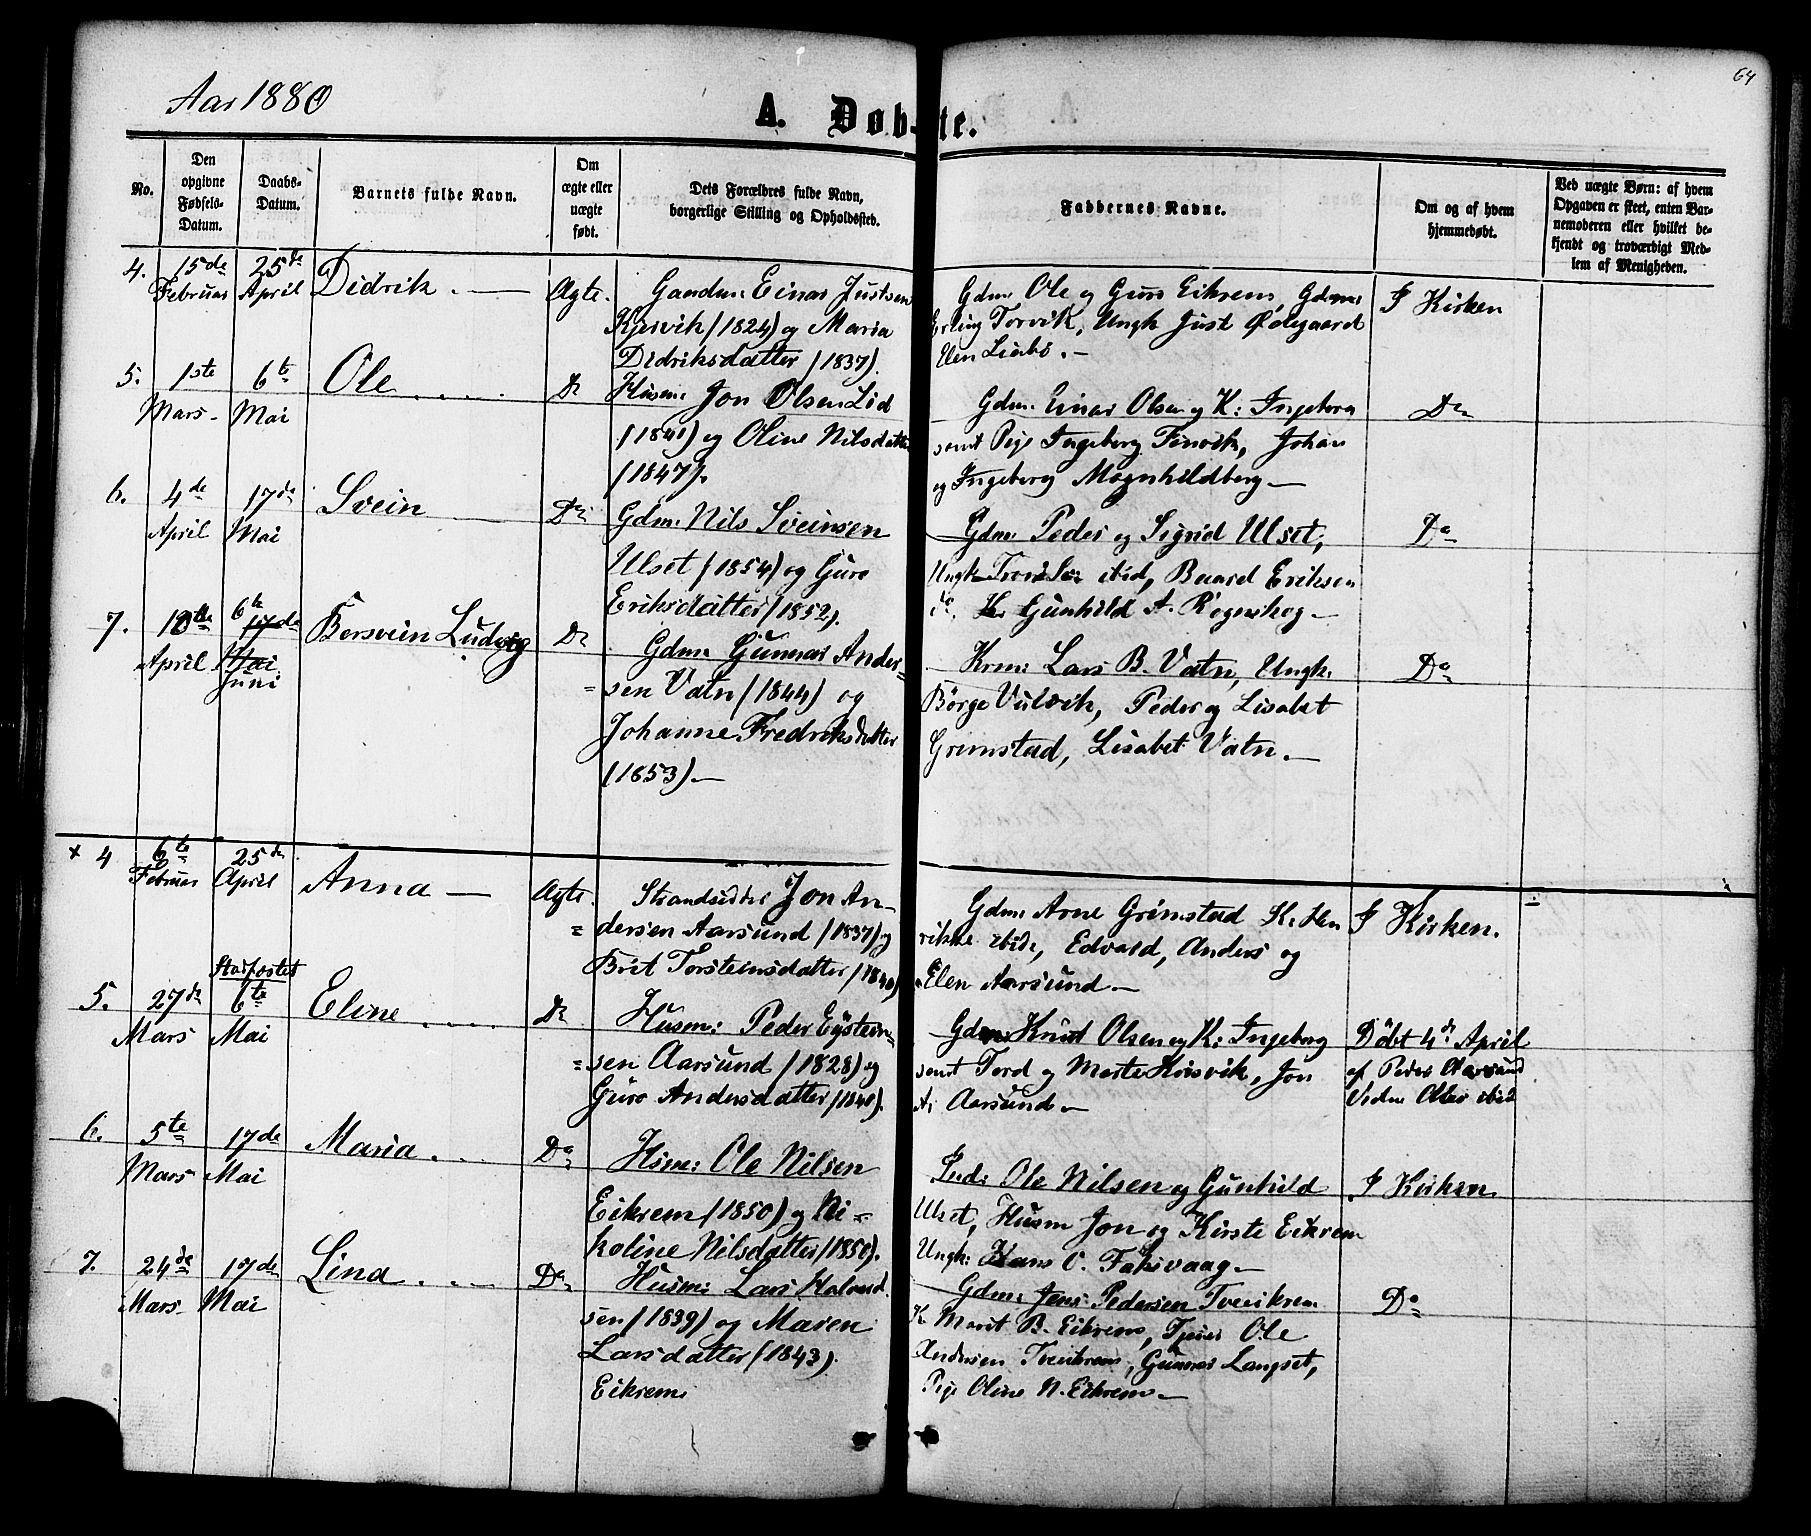 64
Aar 1880
A. Døb-te.
No.
Den opgivne Fødsels-Datum.
Daabs-Datum.
Barnets fulde Navn.
Om ægte eller uægte født.
Dets Forældres fulde Navn, borgerlige Stilling og Opholdssted.
Faddernes Navne.
Om og af hvem hjemmedøbt.
Ved uægte Børn: af hvem Opgaven er skeet, enten Barnemoderen eller hvilket bekjendt og troværdigt Medlem af Menigheden.
4. 15de Februar 25de April Didrik. — Ægte.
Gaardm: Einar Justsen
Kjørvik (1824) og Maria
Didriksdatter (1837).
Gdm: Ole og Guro Eikrem, Gdm:
Erling Torvik, Ungk Just Ødegaard
Elen Liabø. —
I Kirken
5. 1ste Mars 6te Mai Ole . . . . Do
Husm: Jon Olsen Lid
(1841) og Oline Nilsdatter
(1847).
Gdm: Einar Olsen og K: Ingeborg
samt Pige Ingeborg Torvik, Johan
og Ingeborg Magnhildberg —
Do
6. 4de April 17de Mai Svein — Do
Gdm: Nils Sveinsen
Ulset (1854) og Guro
Eriksdatter (1852).
Gdm: Peder og Sigrid Ulset,
Ungk ibid, Baard Eriksen
Gunhild A. Rognskog —
Do
7. 10de April 6te 17de Mai Juni Bersvein Ludvig Do
Gdm: Gunnar Ander-
sen Vatn (1844) og
Johanne Fredriksdatter
(1853). —
Krm: Lars B. Vatn, Ungk:
Børge Vulvik, Peder og Lisabet
Grimstad, Lisabet Vatn. —
Do
x 4 6te Februar 25de April Anna — Ægte.
Strandsidder Jon An-
dersen Aarsund (1837) og
Brit Torsteinsdatter (1840)
Gdm: Arne Grimstad K: Hen
rikke ibid, Edvard, Anders og
Elen Aarsund —
I Kirken.
5. 27de Mars 6te Mai Eline . . . . Do
Husm: Peder Eystein-
sen Aarsund (1828) og
Guro Andersdatter (1840).
Gdm: Knut Olsen og K: Ingeborg
samt Tord og Marte Korsvik, Jon
A. Aarsund —
Døbt 4de April
af Peder Aarsund
6. 5te Mars 17de Mai Maria . . . Do
Husm: Ole Nilsen
Eikrem (1850) og Ni-
koline Nilsdatter (1850).
Ind: Ole Nilsen og Gunhild
Ulset, Husm Jon og Kirste Eikrem
Ungk: Hans O. Faksvaag —
I Kirken
7. 24de Mars 17de Mai Lina . . — Do
Husm: Lars Halvard
sen (1839) og Maren
Larsdatter (1843).
Eikrem
Gdm: Jens Pedersen Tveeikrem
K Marit B. Eikrem, Ole
Andersen Tveeikrem, Gunnar Langset,
Pige Oline N. Eikrem —
Do